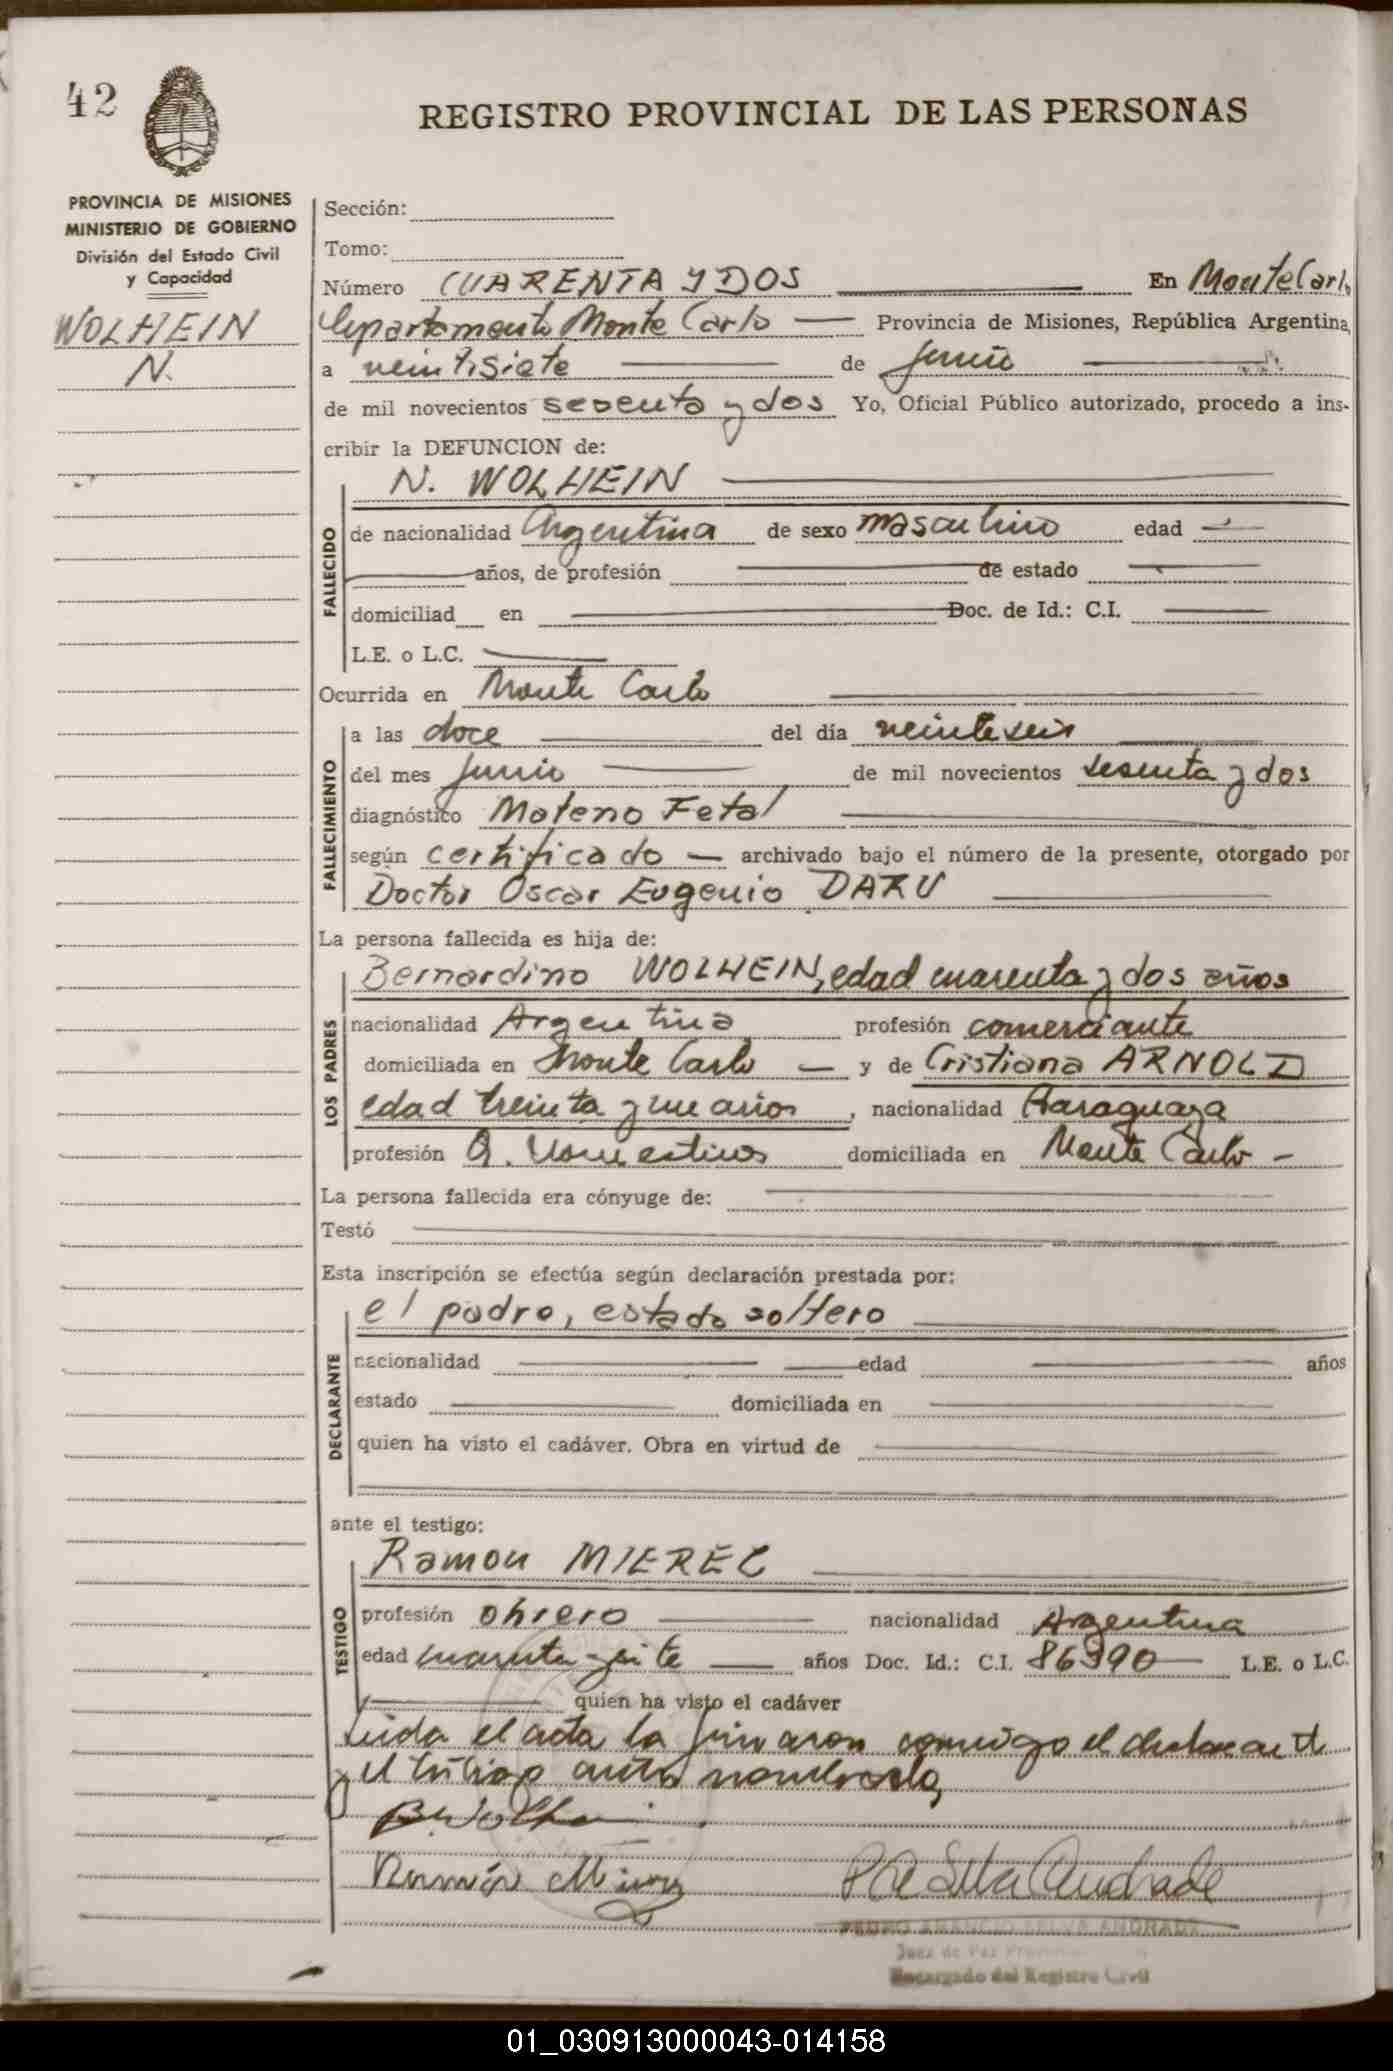 42
REGISTRO PROVINCIAL DE LAS PERSONAS
PROVINCIA DE MISIONES
MINISTERIO DE GOBIERNO
División del Estado Civil
y Capacidad
WOLHEIN
N.
Sección:
Tomo:
Número CUARENTA Y DOS En Monte Carlo
Departamento Monte Carlo Provincia de Misiones, República Argentina,
a veintisiete de junio
de mil novecientos sesenta y dos Yo, Oficial Público autorizado, procedo a ins-
cribir la DEFUNCION de:
N. WOLHEIN
FALLECIDO
de nacionalidad Argentina de sexo masculino edad
años, de profesión de estado
domiciliad en Doc. de Id.: C.I.
L.E. o L.C.
Ocurrida en Monte Carlo
FALLECIMIENTO
a las doce del día veinteseis
del mes junio de mil novecientos sesenta y dos
diagnóstico Materno Fetal
según certificado archivado bajo el número de la presente, otorgado por
Doctor Oscar Eugenio DARU
La persona fallecida es hija de:
LOS PADRES
Bernardino WOLHEIN, edad cuarenta y dos años
nacionalidad Argentina profesión comerciante
domiciliada en Monte Carlo y de Cristiana ARNOLD
edad treinta y un años, nacionalidad Paraguaya
profesión Q. Domesticos domiciliada en Monte Carlo
La persona fallecida era cónyuge de:
Testó
Esta inscripción se efectúa según declaración prestada por:
DECLARANTE
el padre, estado soltero
nacionalidad edad años
estado domiciliada en
quien ha visto el cadáver. Obra en virtud de
ante el testigo:
TESTIGO
Ramon MIEREC
profesión obrero nacionalidad Argentina
edad cuarenta y siete años Doc. Id.: C.I. 86390 L.E. o L.C.
quien ha visto el cadáver
Leida el acta la firmaron conmigo el declarante
y el testigo antes nombrado,
Ramón
PEDRO AMANCIO SILVA ANDRADE
Juez de Paz
Encargado del Registro Civil
01_030913000043-014158